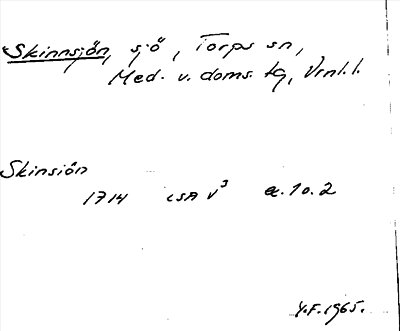 Skinnsjön, sjö, Torps sn,
Med. v. doms. tg, Vrnl. l.
Skinsiön
1714 LSA V3 æ. 10. 2
Y.F. 1965.